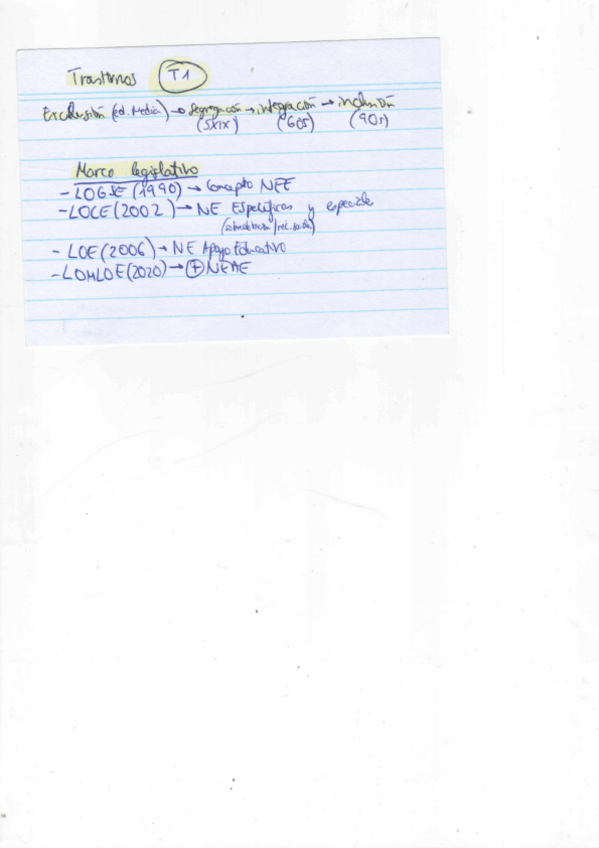 Trastornos T1
Exclusión (ed. Media) → Segregación → integración → inclusión
(SXIX) (60s) (90s)
Marco legislativo
- LOGSE (1990) → Concepto NEE
- LOCE (2002) → NE Específicas y especiales
- LOE (2006) → NE Apoyo Educativo
- LOMLOE (2020) → + NEAE